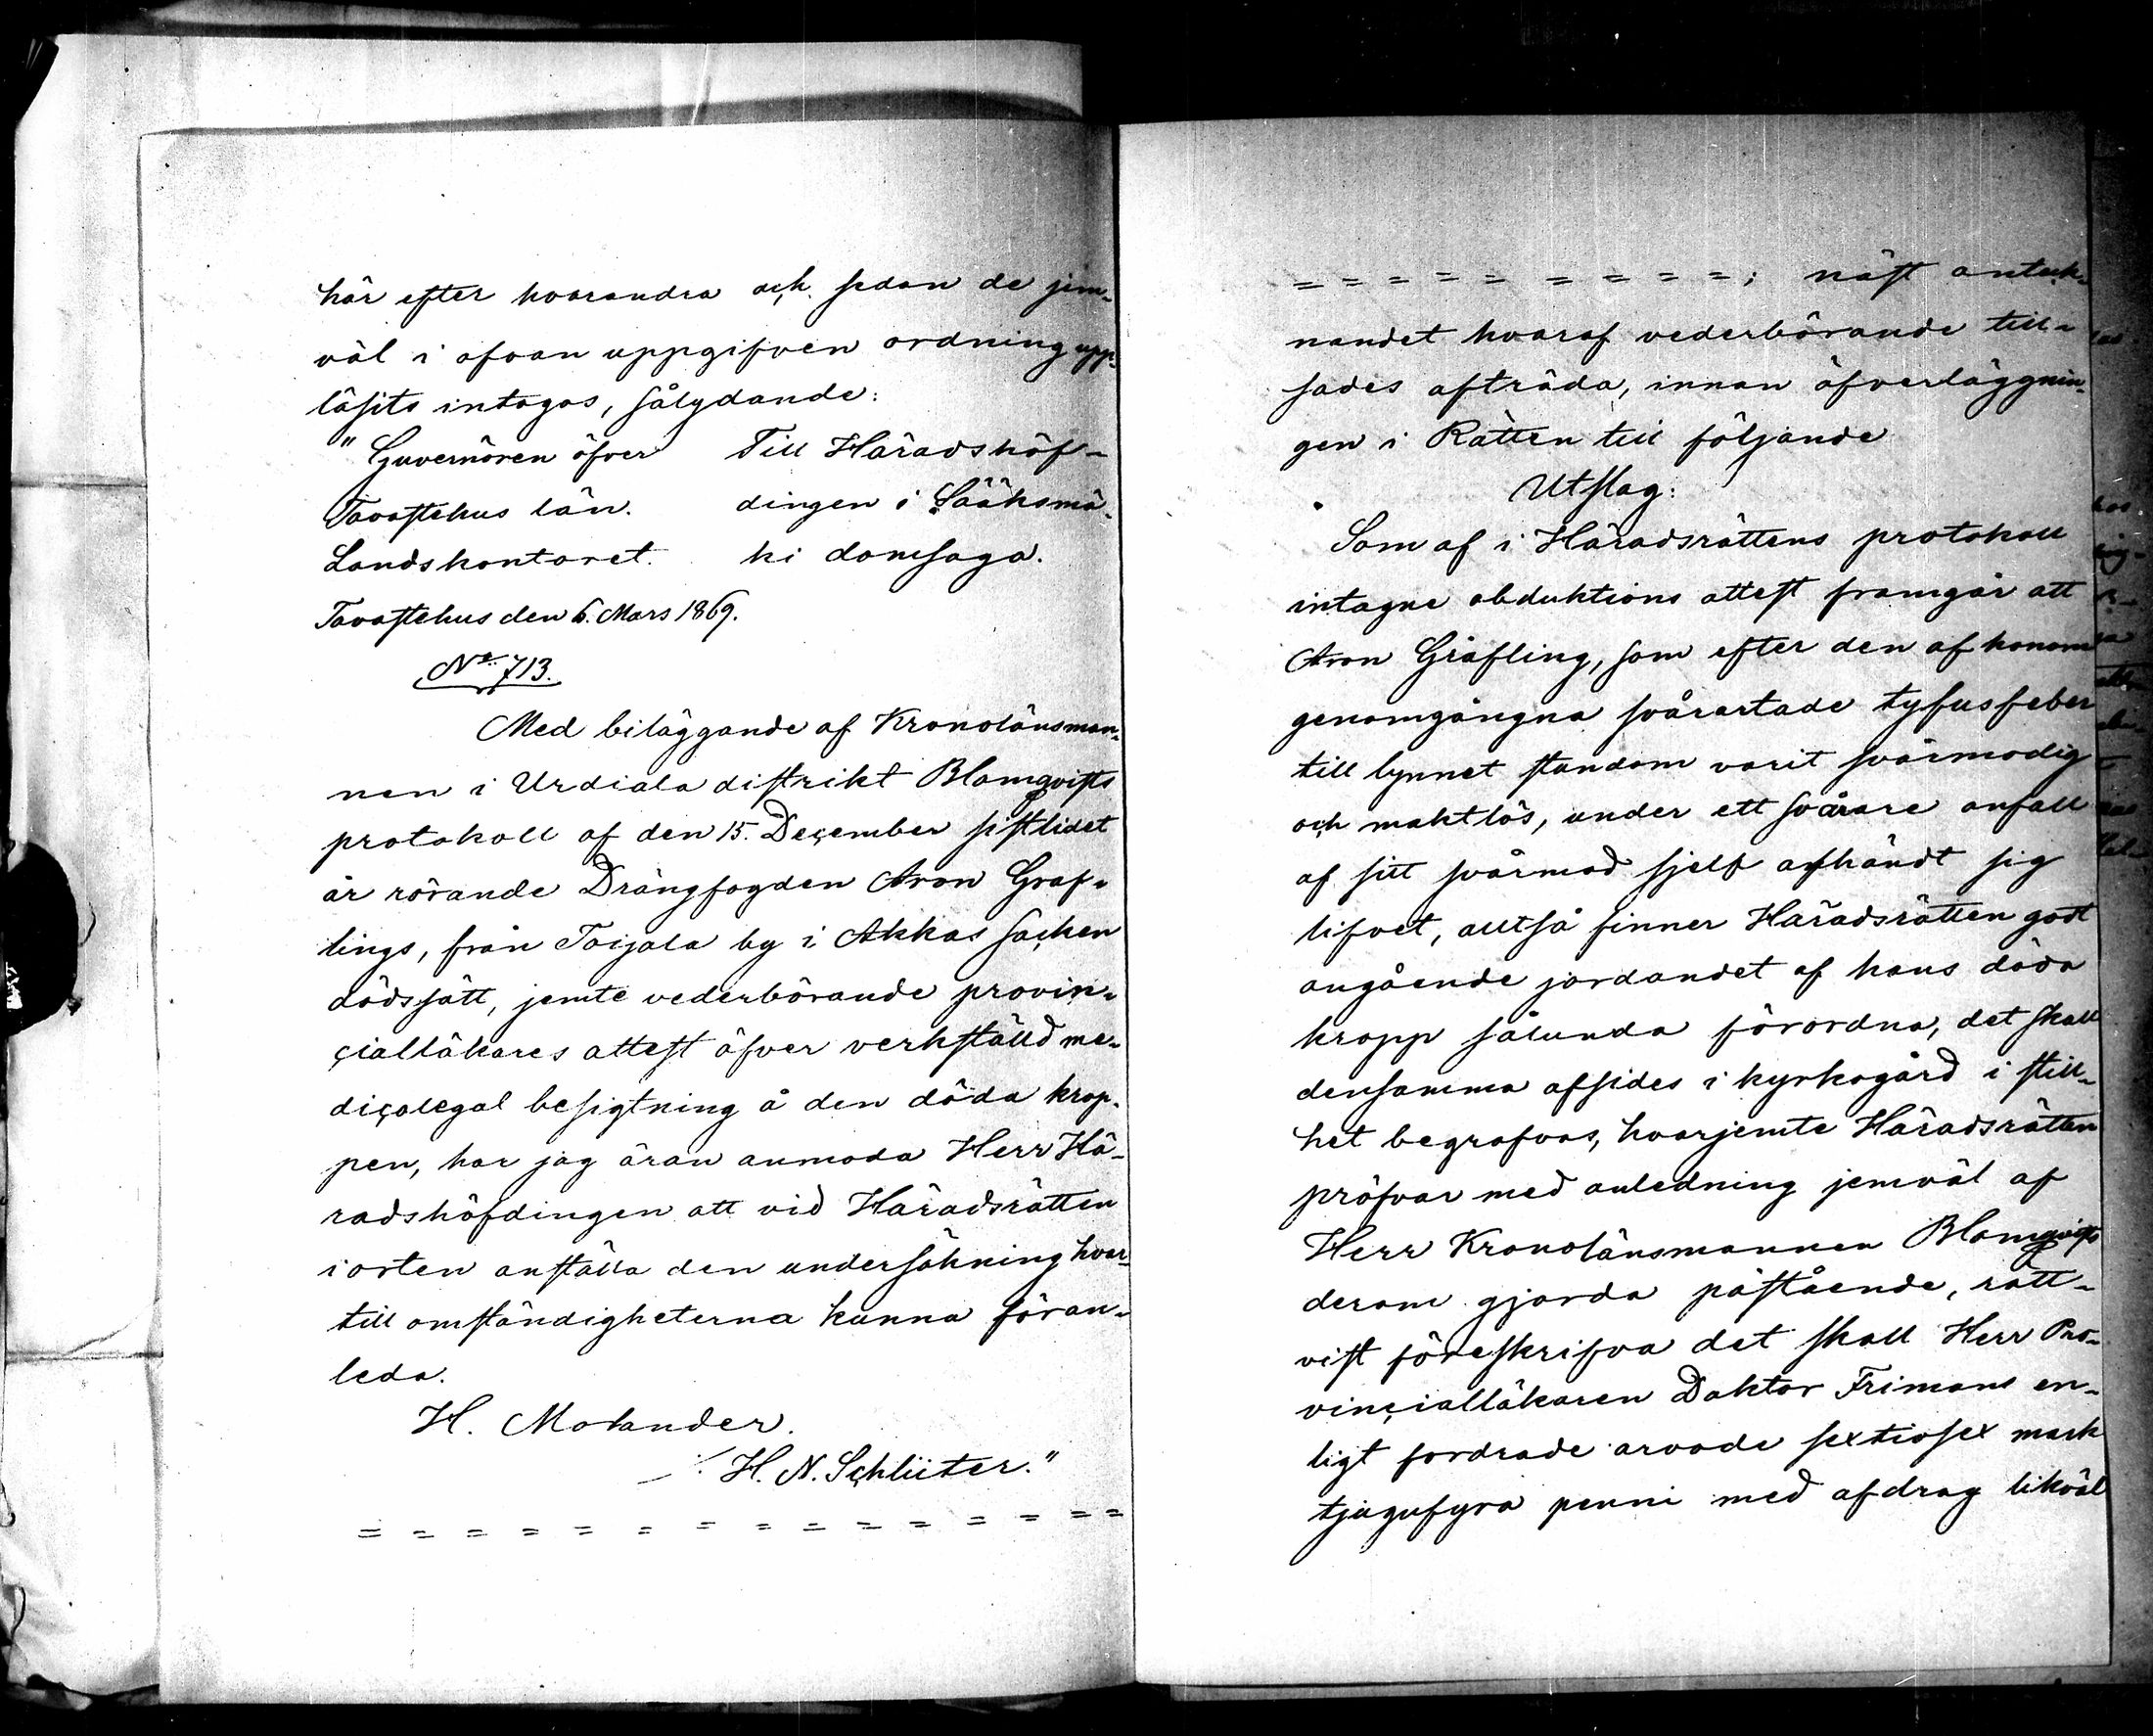 här efter hvarandra och sedan de jem-
väl i ofvan uppgifven ordning upp-
läsits intagas, sålydande:
"Guvernören öfver
Tavastehus län.
Landskontoret.
Tavastehus den 6. Mars 1869.
No 713.
Till Häradshöf-
dingen i Sääksmä-
ki domsaga.
Med biläggande af Kronolänsman-
nen i Urdiala distrikt Blomqvists
protokoll af den 15. December sistlidet
år rörande Drängfogden Aron Gräf-
lings, från Toijala by i Akkas socken
dödssätt, jemte vederbörande provin-
cialläkares attest öfver verkställd me-
dicolegal besigtning å den döda krop-
pen, har jag äran anmoda Herr Hä-
radshöfdingen att vid Häradsrätten
i orten anställa den undersökning hvar-
till omständigheterna kunna föran-
leda.
H. Molander.
./. H. N. Schlüter."
= = = = = = = = = = = = = =
= = = = = = = = = =; näst anteck-
nandet hvaraf vederbörande till-
sades afträda, innan öfverläggnin-
gen i Rätten till följande
Utslag:
Som af i Häradsrättens protokoll
intagne obduktions attest framgår att
Aron Gräfling, som efter den af honom
genomgångna svårartade tyfusfeber
till lynnet stundom varit svårmodig
och maktlös, under ett svårare anfall
af sitt svårmod sjelf afhändt sig
lifvet, alltså finner Häradsrätten godt
angående jordandet af hans döda
kropp sålunda förordna, det skall
densamma afsides i kyrkogård i still-
het begrafvas, hvarjemte Häradsrätten
pröfvar med anledning jemväl af
Herr Kronolänsmannen Blomqvists
derom gjorda påstående, rätt-
vist föreskrifva det skall Herr Pro-
vincialläkaren Doktor Frimans en-
ligt fordrade arvode sextiosex mark
tjugufyra penni med afdrag likväl